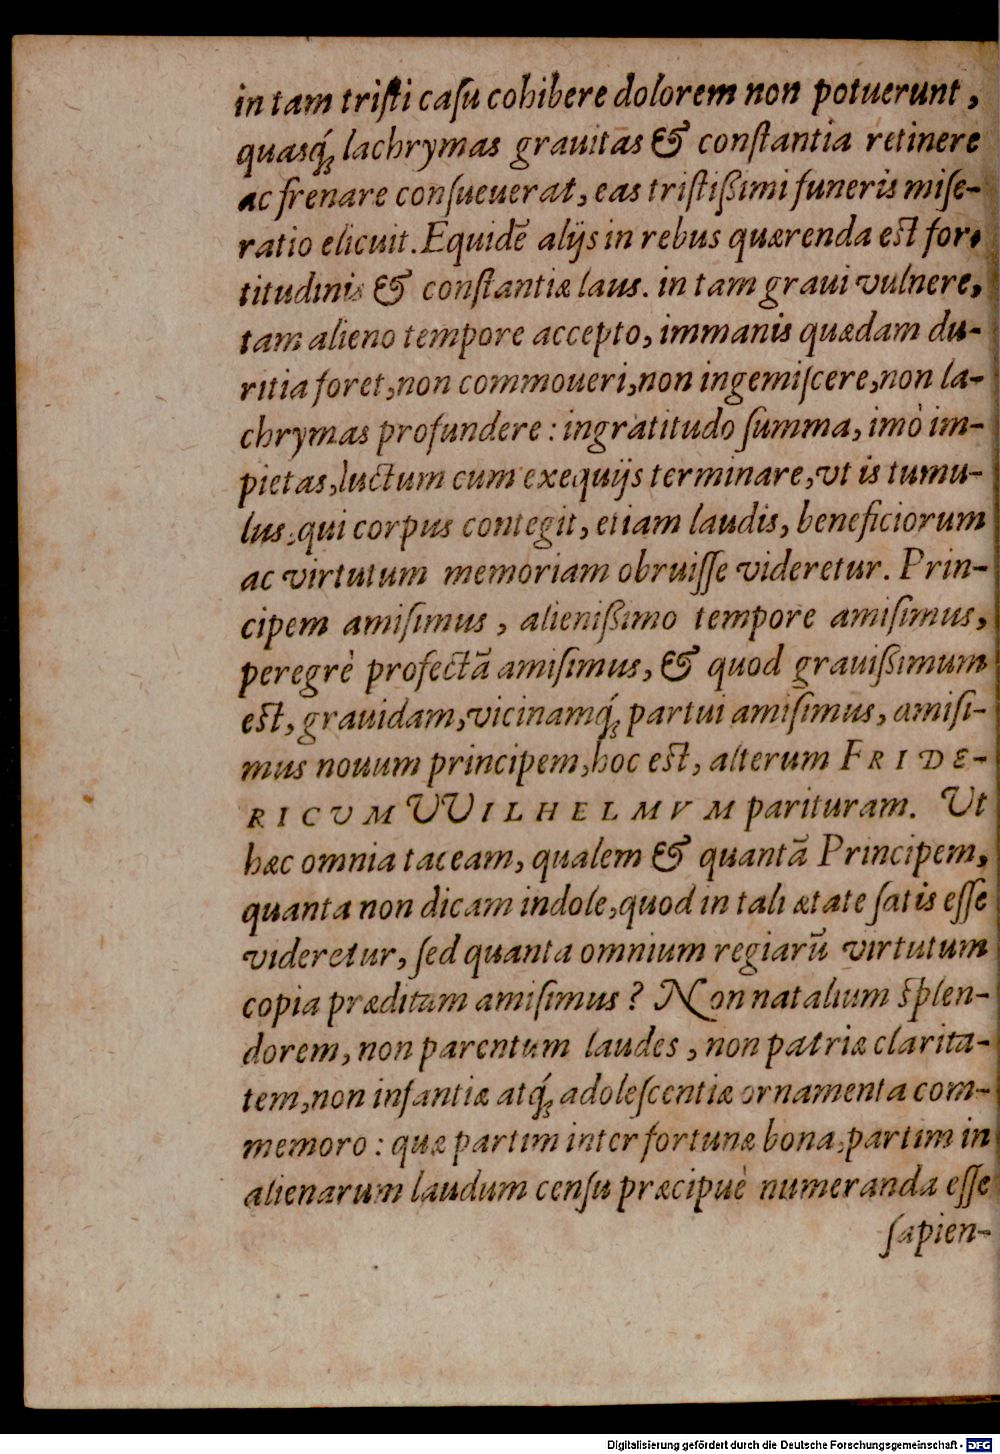 in tam triſti caſu cohibere dolorem non potuerunt,
quasq́; lachrymas grauitas & conſtantia retinere
ac frenare conſueuerat, eas triſtißimi funeris miſe-
ratio elicuit. Equidē alijs in rebus quærenda eſt for-
titudinis & conſtantiæ laus. in tam graui vulnere,
tam alieno tempore accepto, immanis quædam du-
ritia foret, non commoueri, non ingemiſcere, non la-
chrymas profundere: ingratitudo ſumma, imò im-
pietas, luctum cum exequijs terminare, vt is tumu-
lus, qui corpus contegit, etiam laudis, beneficiorum
ac virtutum memoriam obruiſſe videretur. Prin-
cipem amiſimus, alienißimo tempore amiſimus,
peregrè profectā amiſimus, & quod grauißimum
eſt, grauidam, vicinamq́; partui amiſimus, amiſi-
mus nouum principem, hoc eſt, alterum FRIDE-
RICUM VVILHELMVM parituram. Ut
hæc omnia taceam, qualem & quantā Principem,
quanta non dicam indole, quod in tali ætate ſatis eſſe
videretur, ſed quanta omnium regiarū virtutum
copia præditam amiſimus? Non natalium ſplen-
dorem, non parentum laudes, non patriæ clarita-
tem, non infantiæ atq́; adoleſcentiæ ornamenta com-
memoro: quæ partim inter fortunæ bona, partim in
alienarum laudum cenſu præcipuè numeranda eſſe
ſapien-
Digitalisierung gefördert durch die Deutsche Forschungsgemeinschaft - DFG